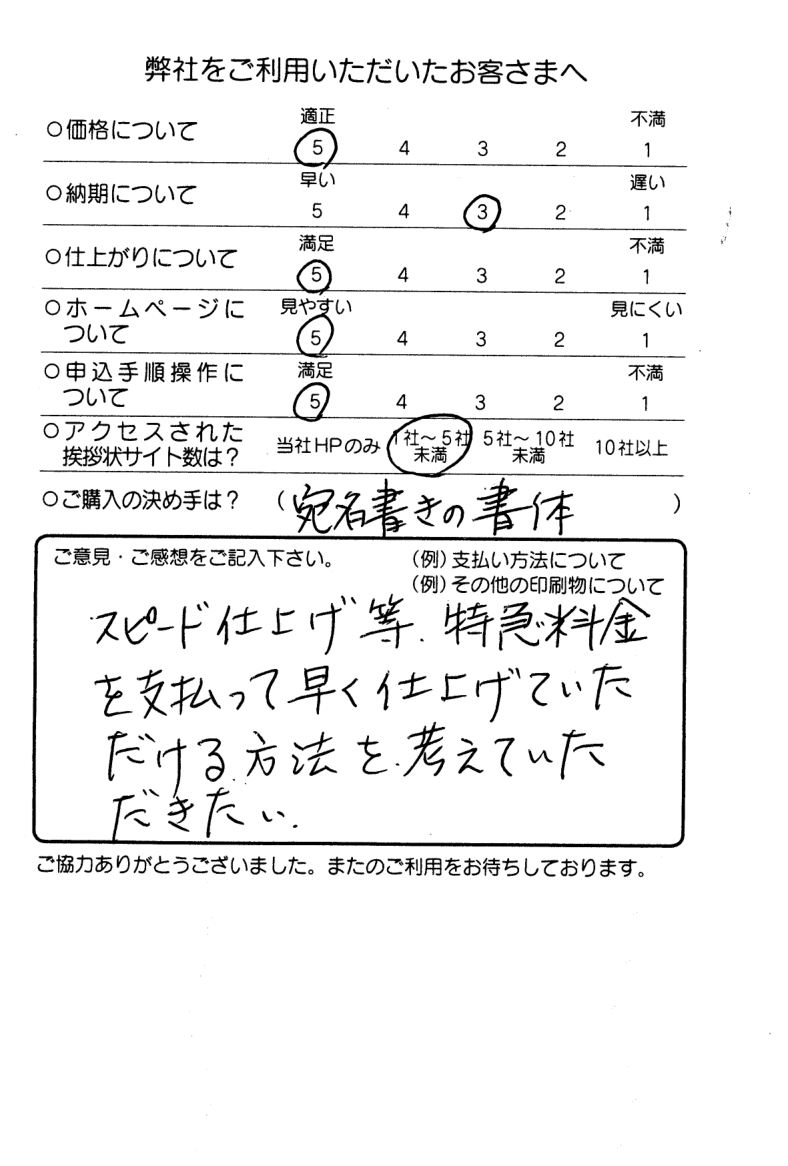 弊社をご利用いただいたお客さまへ
適正 不満
○価格について 5 4 3 2 1
早い 遅い
○納期について 5 4 3 2 1
満足 不満
○仕上がりについて 5 4 3 2 1
○ホームページに 見やすい 見にくい
ついて 5 4 3 2 1
○申込手順操作に 満足 不満
ついて 5 4 3 2 1
○アクセスされた 当社HPのみ 1社~5社 5社~10社 10社以上
挨拶状サイト数は? 未満 未満
○ご購入の決め手は? (宛名書きの書体)
ご意見・ご感想をご記入下さい。 (例)支払い方法について
(例)その他の印刷物について
スピード仕上げ等、特急料金
を支払って早く仕上げていた
だける方法を考えていた
だきたい.
ご協力ありがとうございました。またのご利用をお待ちしております。